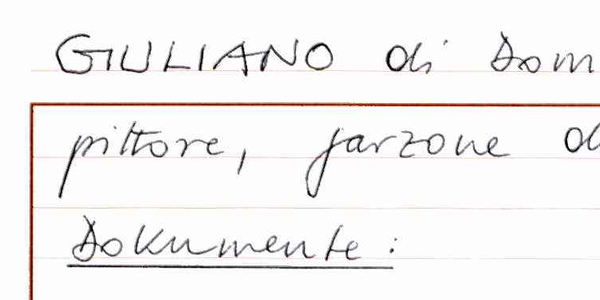 GIULIANO di Dom
pittore, garzone d
Dokumente: